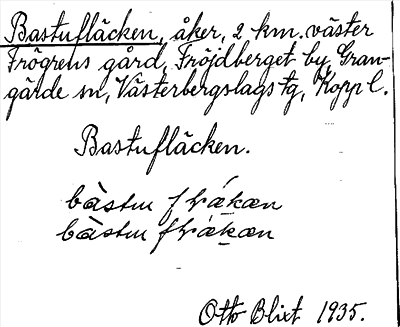 Bastufläcken, åker, 2 km. väster
Frögrens gård, Fröjdberget by, Gran-
gärde sn, Västerbergslags tg, Kopp l.
Bastufläcken.
bàstuu flákæn
bàstuu flákæn
Otto Blixt 1935.